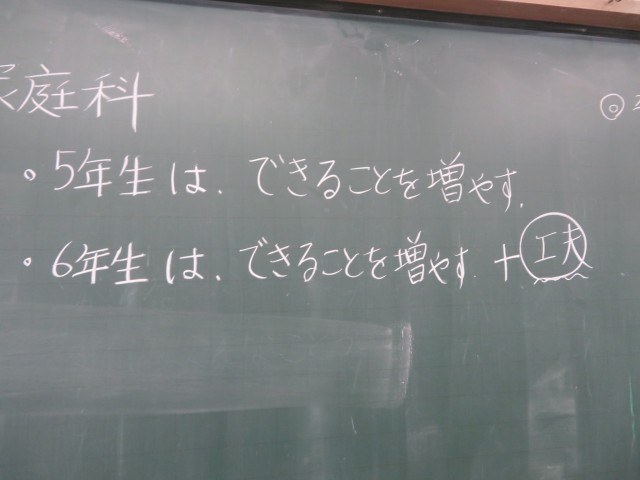 家庭科
◎
• 5年生は、できることを増やす。
• 6年生は、できることを増やす + 工夫